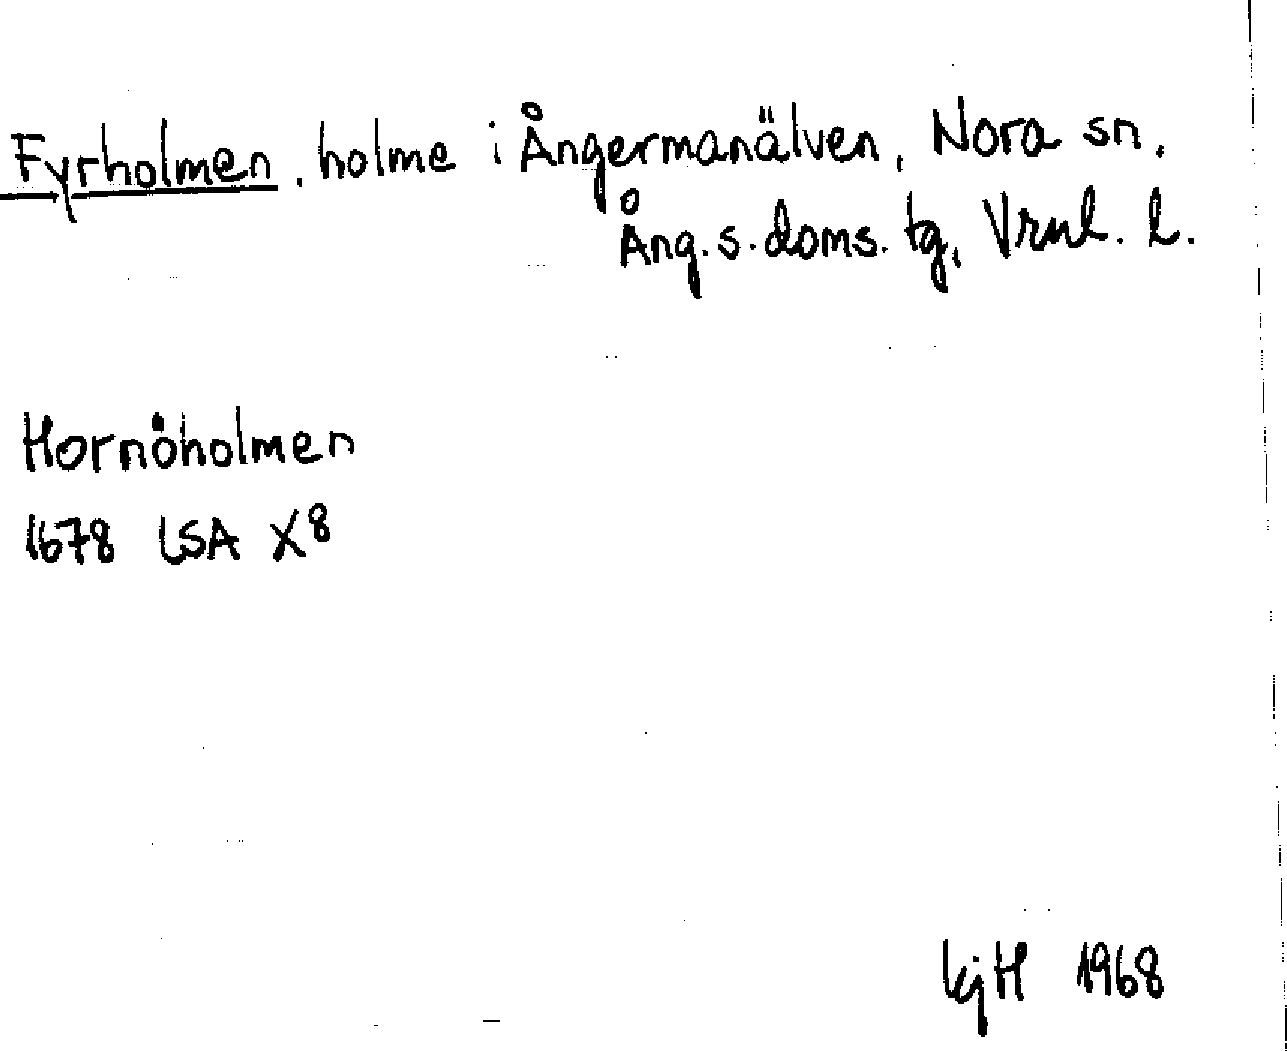 Fyrholmen, holme i Ångermanälven, Nora sn.
Ång.s.doms. tg, Vrnl. l.
Hornöholmen
1678 LSA X8
kjH 1968